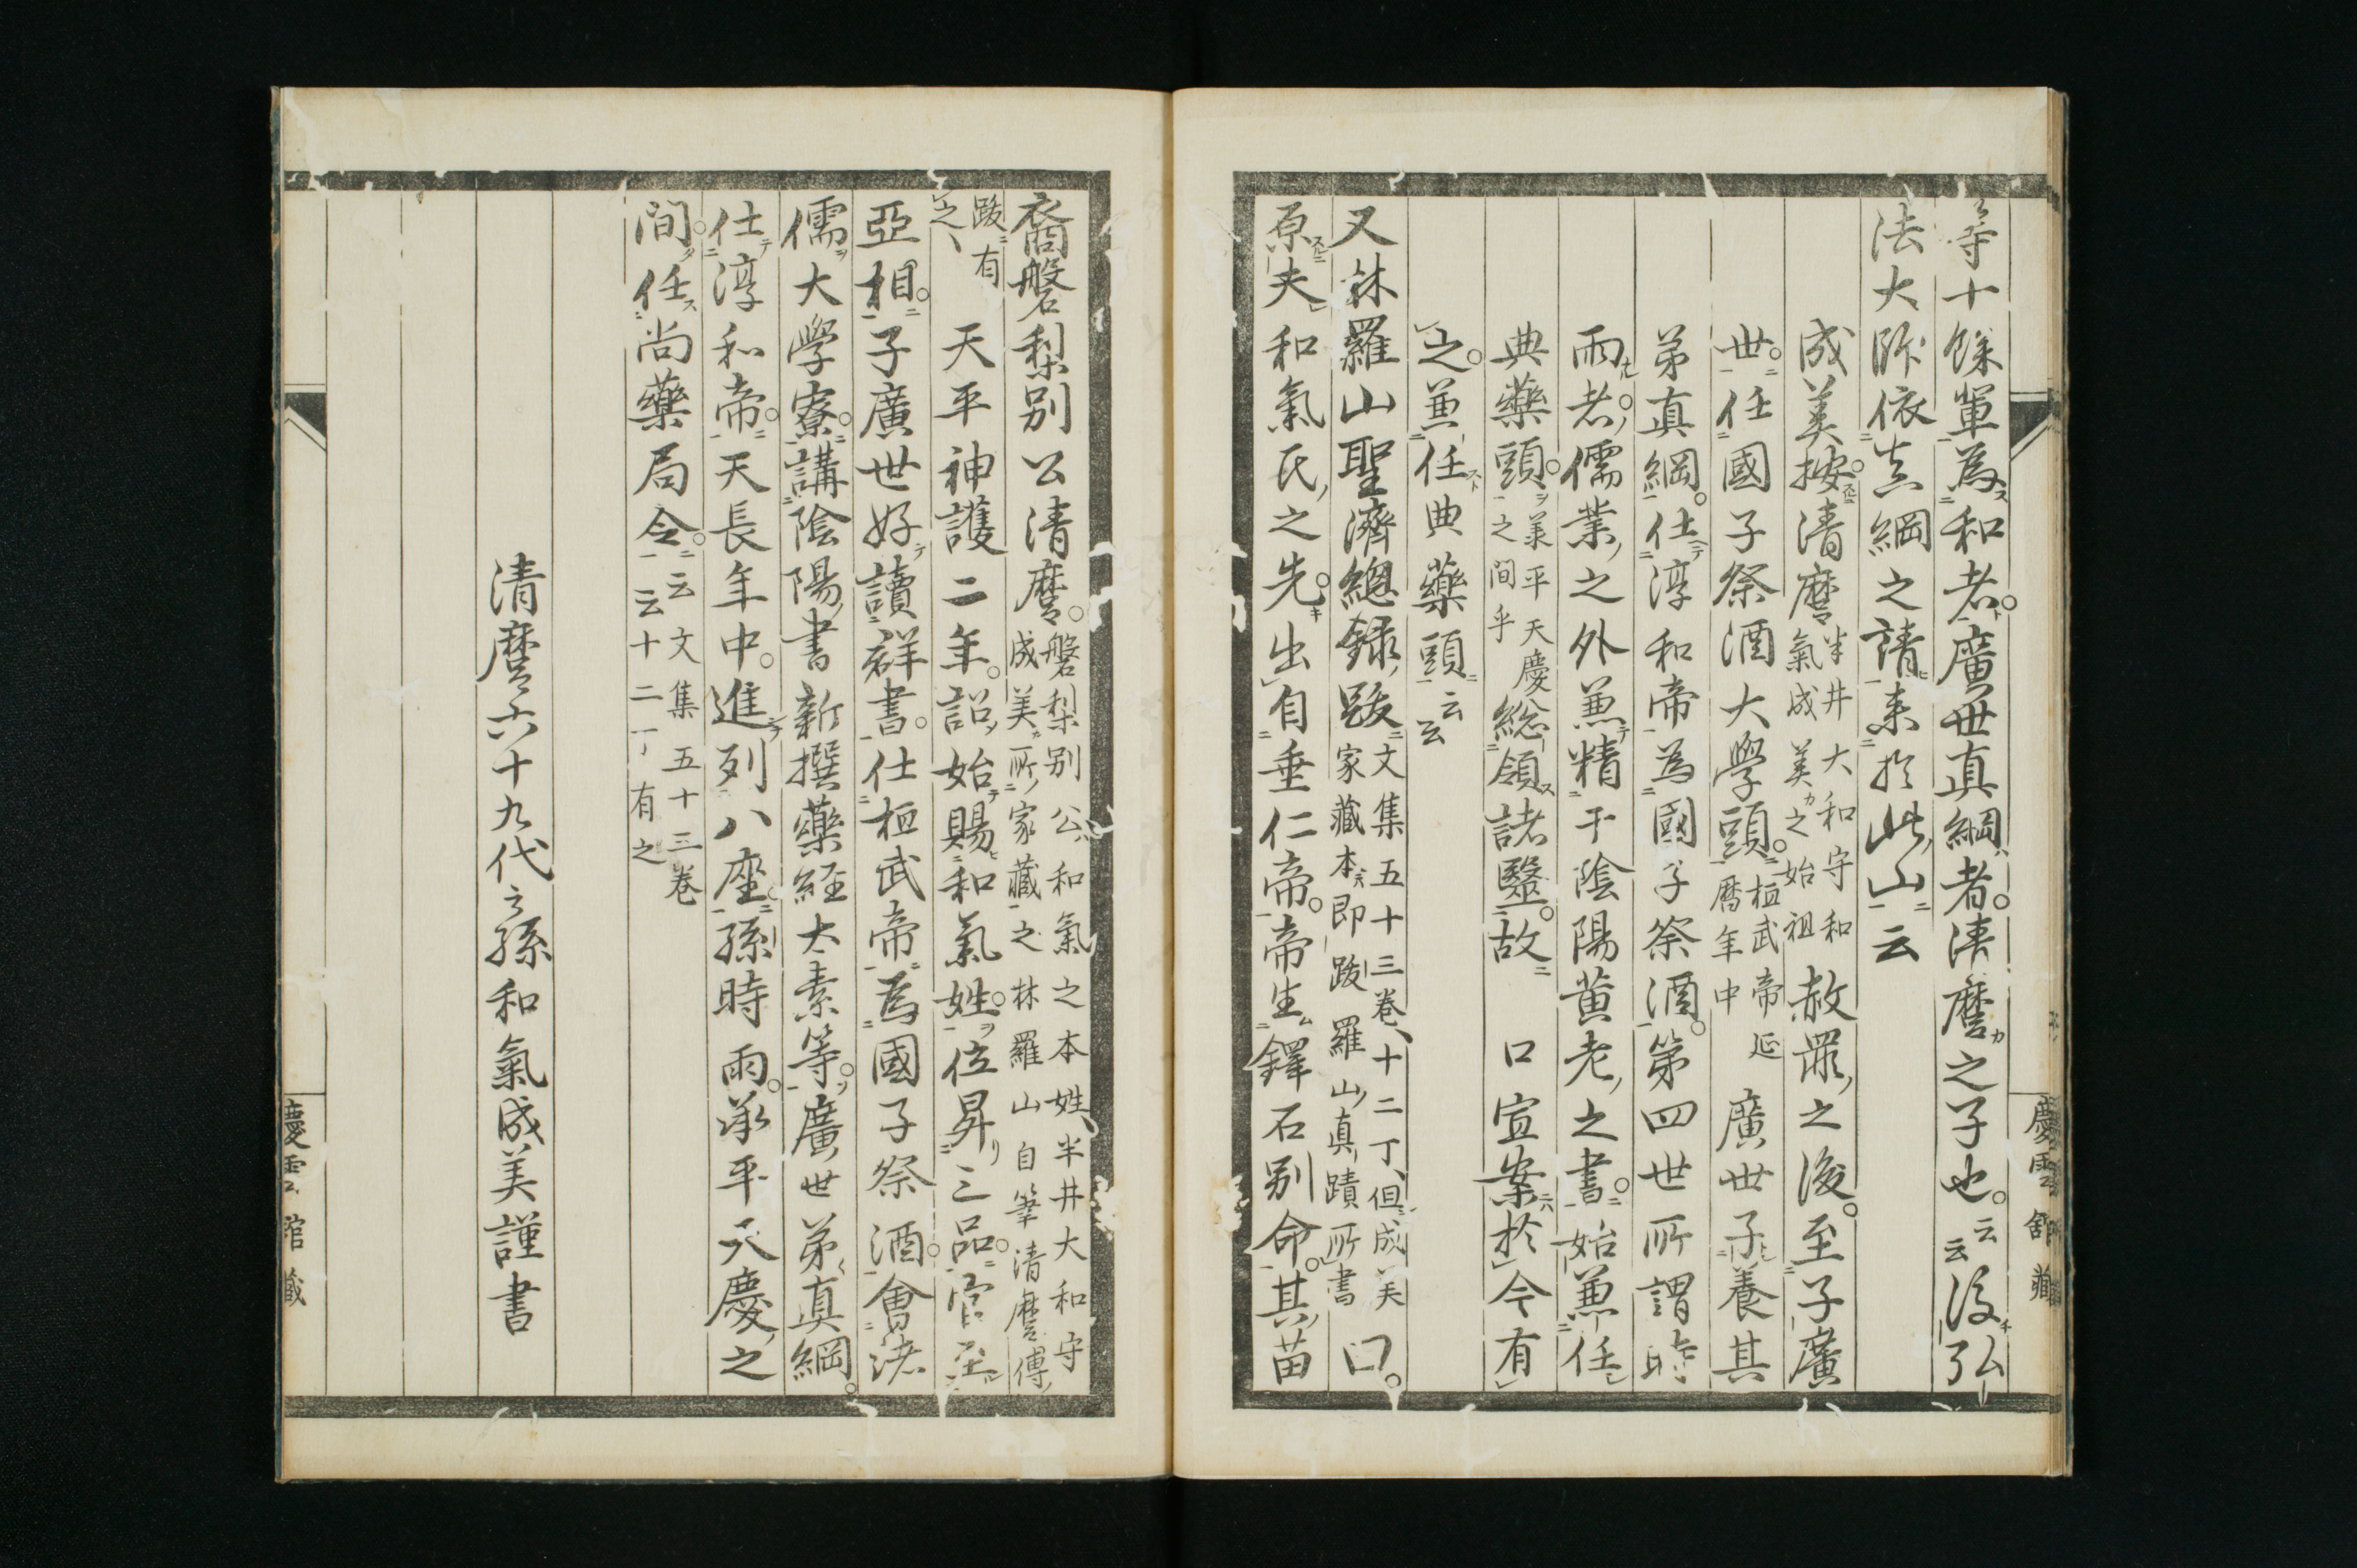 等十餘輩為和老廣世真綱者清麿之子也云云後弘
法大師依真綱之請来於此山云
成美按清麿半井大和守和
氣成美之始祖赦罪之後至子廣
世任國子祭酒大學頭桓武帝延
暦年中廣世子養其
弟真綱仕淳和帝為國子祭酒第四世所謂時
雨者儒業之外兼精于陰陽黄老之書始兼任
典藥頭承平天慶
之間乎総領諸醫故口宣案於今有
之兼任典藥頭云云
又林羅山聖濟總録跋文集五十三巻十二丁但成美
家藏本即跋羅山真蹟所書曰
原夫和氣氏之先出自垂仁帝帝生鐸石别命其苗
裔磐梨别公清麿磐梨别公和氣之本姓半井大和守
成美所家藏之林羅山自筆清麿傳
跋有
之天平神護二年詔始賜和氣姓位昇三品官至
亞相子廣世好讀群書仕桓武帝為國子祭酒會諸
儒大學寮講陰陽書新撰藥経太素等廣世弟真綱
仕淳和帝天長年中進列八座孫時雨承平天慶之
間任尚藥局令云文集五十三巻
云十二丁有之
清麿六十九代之孫和氣成美謹書
慶雲館藏